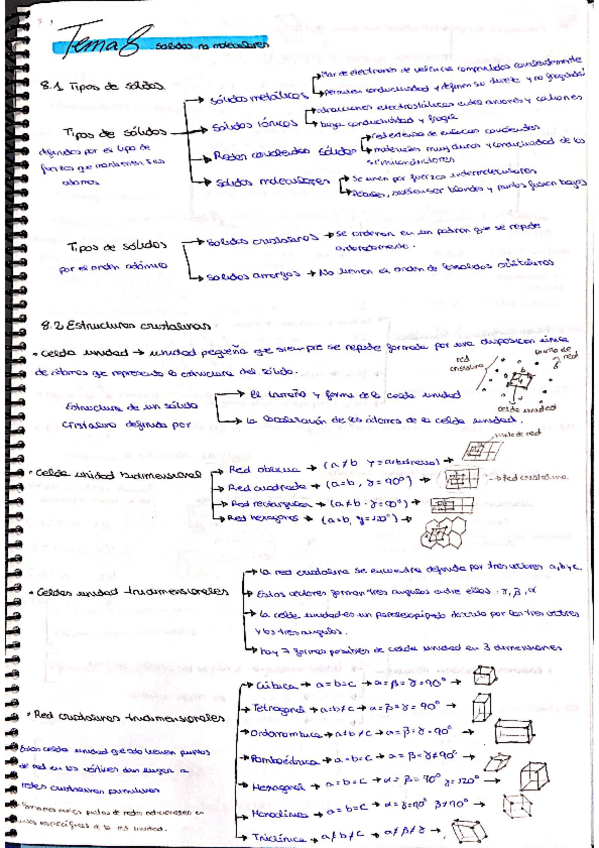 Tema 8 solidos no moleculares
8.1 Tipos de sólidos
Tipos de sólidos
definidos por el tipo de
fuerzas que mantienen sus
átomos
Sólidos metálicos → Mar de electrones de valencia compartidos
Permiten conductividad y
Sólidos iónicos → atracciones electrostáticas entre aniones y cationes
baja conductividad y frágil
Redes covalentes sólidos → red extensa de enlaces covalentes
materiales muy duros y conductividad de los
semiconductores
Sólidos moleculares → Se unen por fuerzas intermoleculares
blandos y puntos fusion bajos
Tipos de sólidos
por el orden atómico
Sólidos cristalinos → Se ordenan en un patron que se repite
Solidos amorfos → No tienen el orden de los solidos cristalinos
8.2 Estructuras cristalinas
• Celda unidad → unidad pequeña que siempre se repite formada por una disposicion única
de átomos que representa la estructura del sólido.
red
cristalina
red
celda unidad
Estructura de un sólido
cristalino definida por
El tamaño y forma de la celda unidad
La localización de los átomos de la celda unidad.
• Celda unidad bidimensional
Red oblicua → (a ≠ b γ = arbitrario) →
Red cuadrada → (a=b, γ = 90°) → → Red cristalina
Red rectangular → (a ≠ b γ = 90°) →
Red hexagonal → (a=b, γ=120°) →
• Celdas unidad tridimensionales
La red cristalina se encuentra definida por tres vectores a, b y c.
Estos vectores forman tres angulos entre ellos: γ, β, α
La celda unidad es un paralelepípedo descrito por los tres vectores
y los tres angulos.
hay 7 formas posibles de celda unidad en 3 dimensiones
• Red cristalinas tridimensionales
Estas celda unidad que solo tienen puntos
de red en los vértices dan lugar a
redes cristalinas primitivas
Cúbica → a=b=c → α=β=γ=90° →
Tetragonal → a=b≠c → α=β=γ=90° →
Ortorrombica → a≠b≠c → α=β=γ=90° →
Romboédrica → a=b=c → α=β=γ≠90° →
Hexagonal → a=b=c → α=β=90° γ=120° →
Monoclínica → a=b=c → α=γ=90° β≠90° →
Triclínica → a≠b≠c → α≠β≠γ →